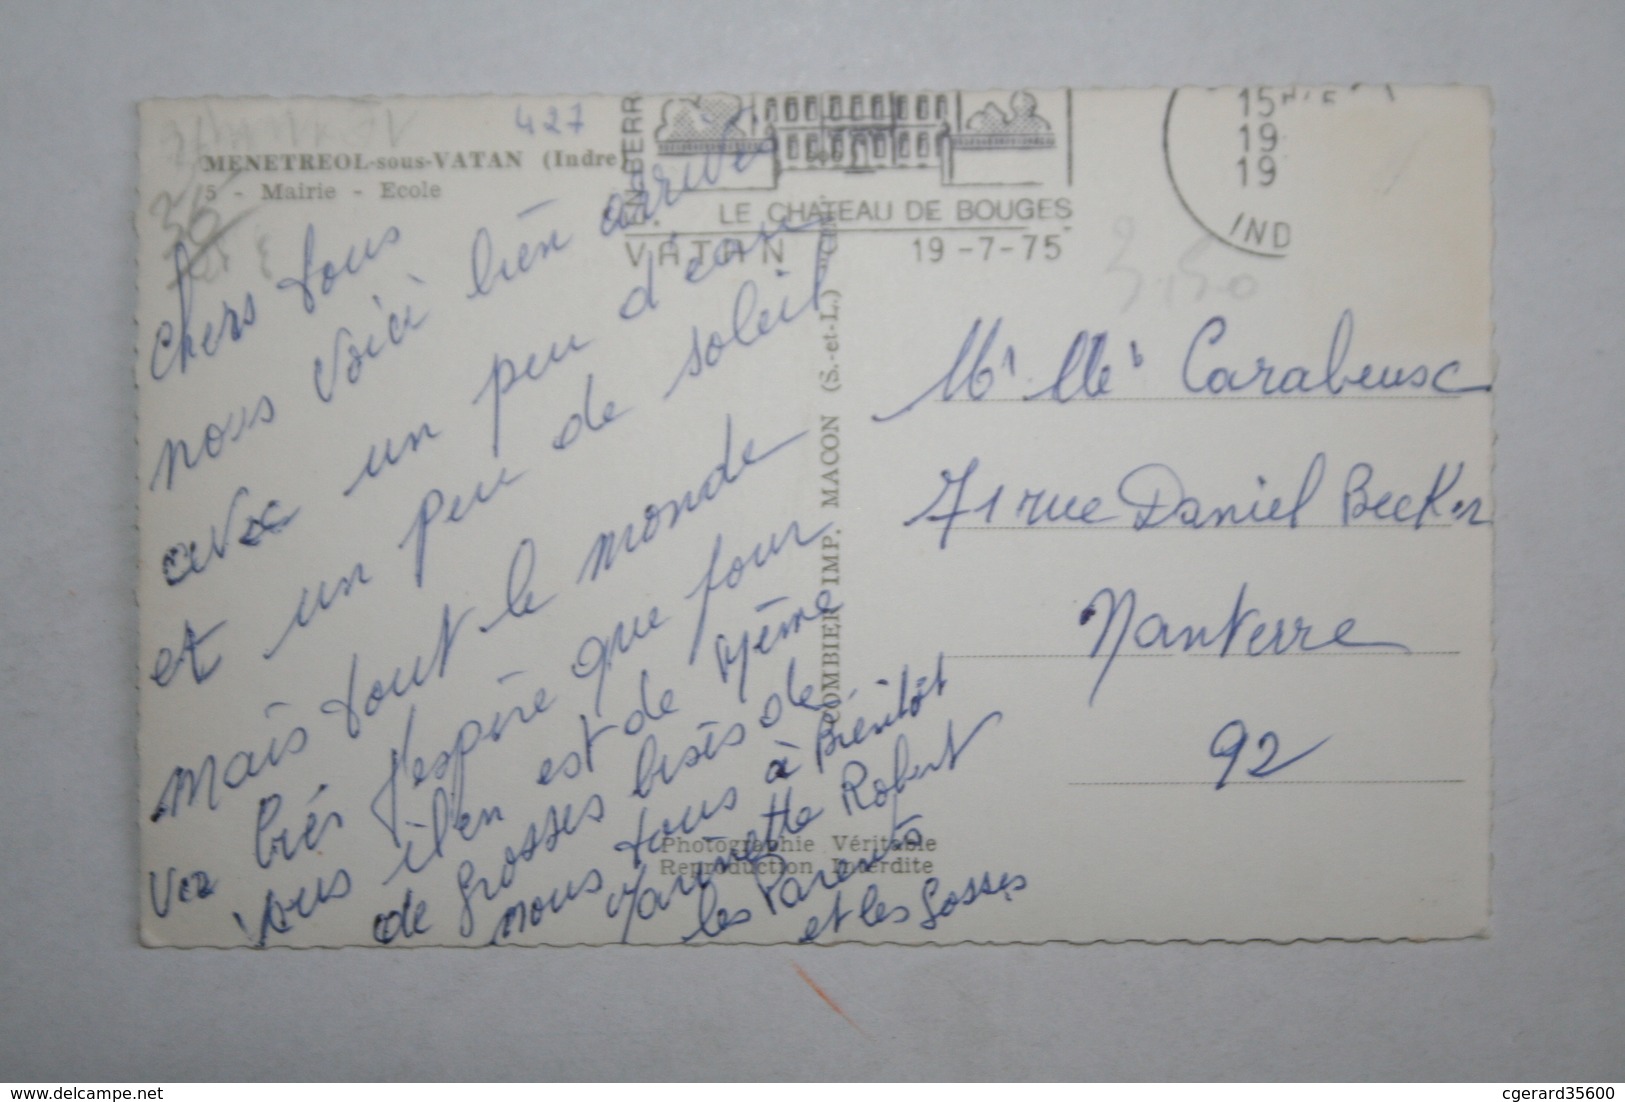 427
MENETREOL-sous-VATAN (Indre)
5 - Mairie - Ecole
36
EN BERR
LE CHATEAU DE BOUGES
VATAN 19-7-75
15H
19
19
IND
3,50
Chers tous
nous voici bien arrivés
avec un peu d'eau
et un peu de soleil
Mais tout le monde
va bien j'espère que pour
vous il en est de même
de grosses bises de
nous tous à Bientôt
Robert
les Parents
et les Gosses
COMBIER IMP. MACON (S.-et-L.)
Photographie Véritable
Reproduction Interdite
Mr Me Carabeusc
71 rue Daniel Becker
Nanterre
92
delcampe.net
cgerard35600